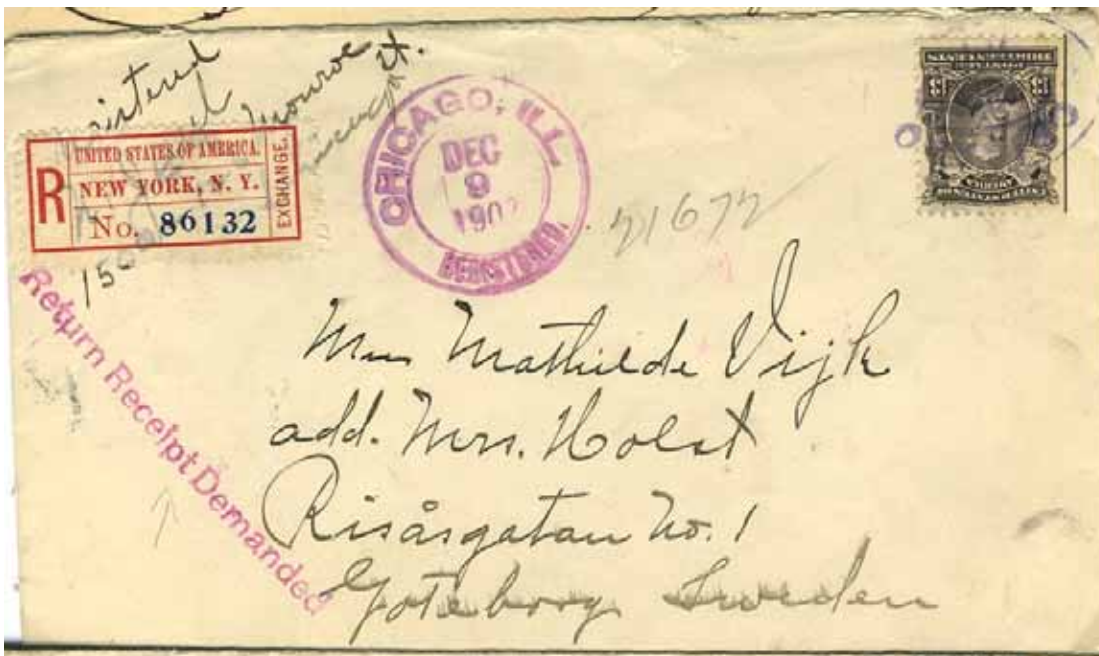 Monroe St.
R
UNITED STATES OF AMERICA.
NEW YORK, N. Y.
No. 86132
EXCHANGE.
CHICAGO, ILL.
DEC
9
REGISTERED.
21672
Return Receipt Demanded
Mathilde Vijk
add. Mrs. Holst
Risåsgatan No. 1
Göteborg Sweden